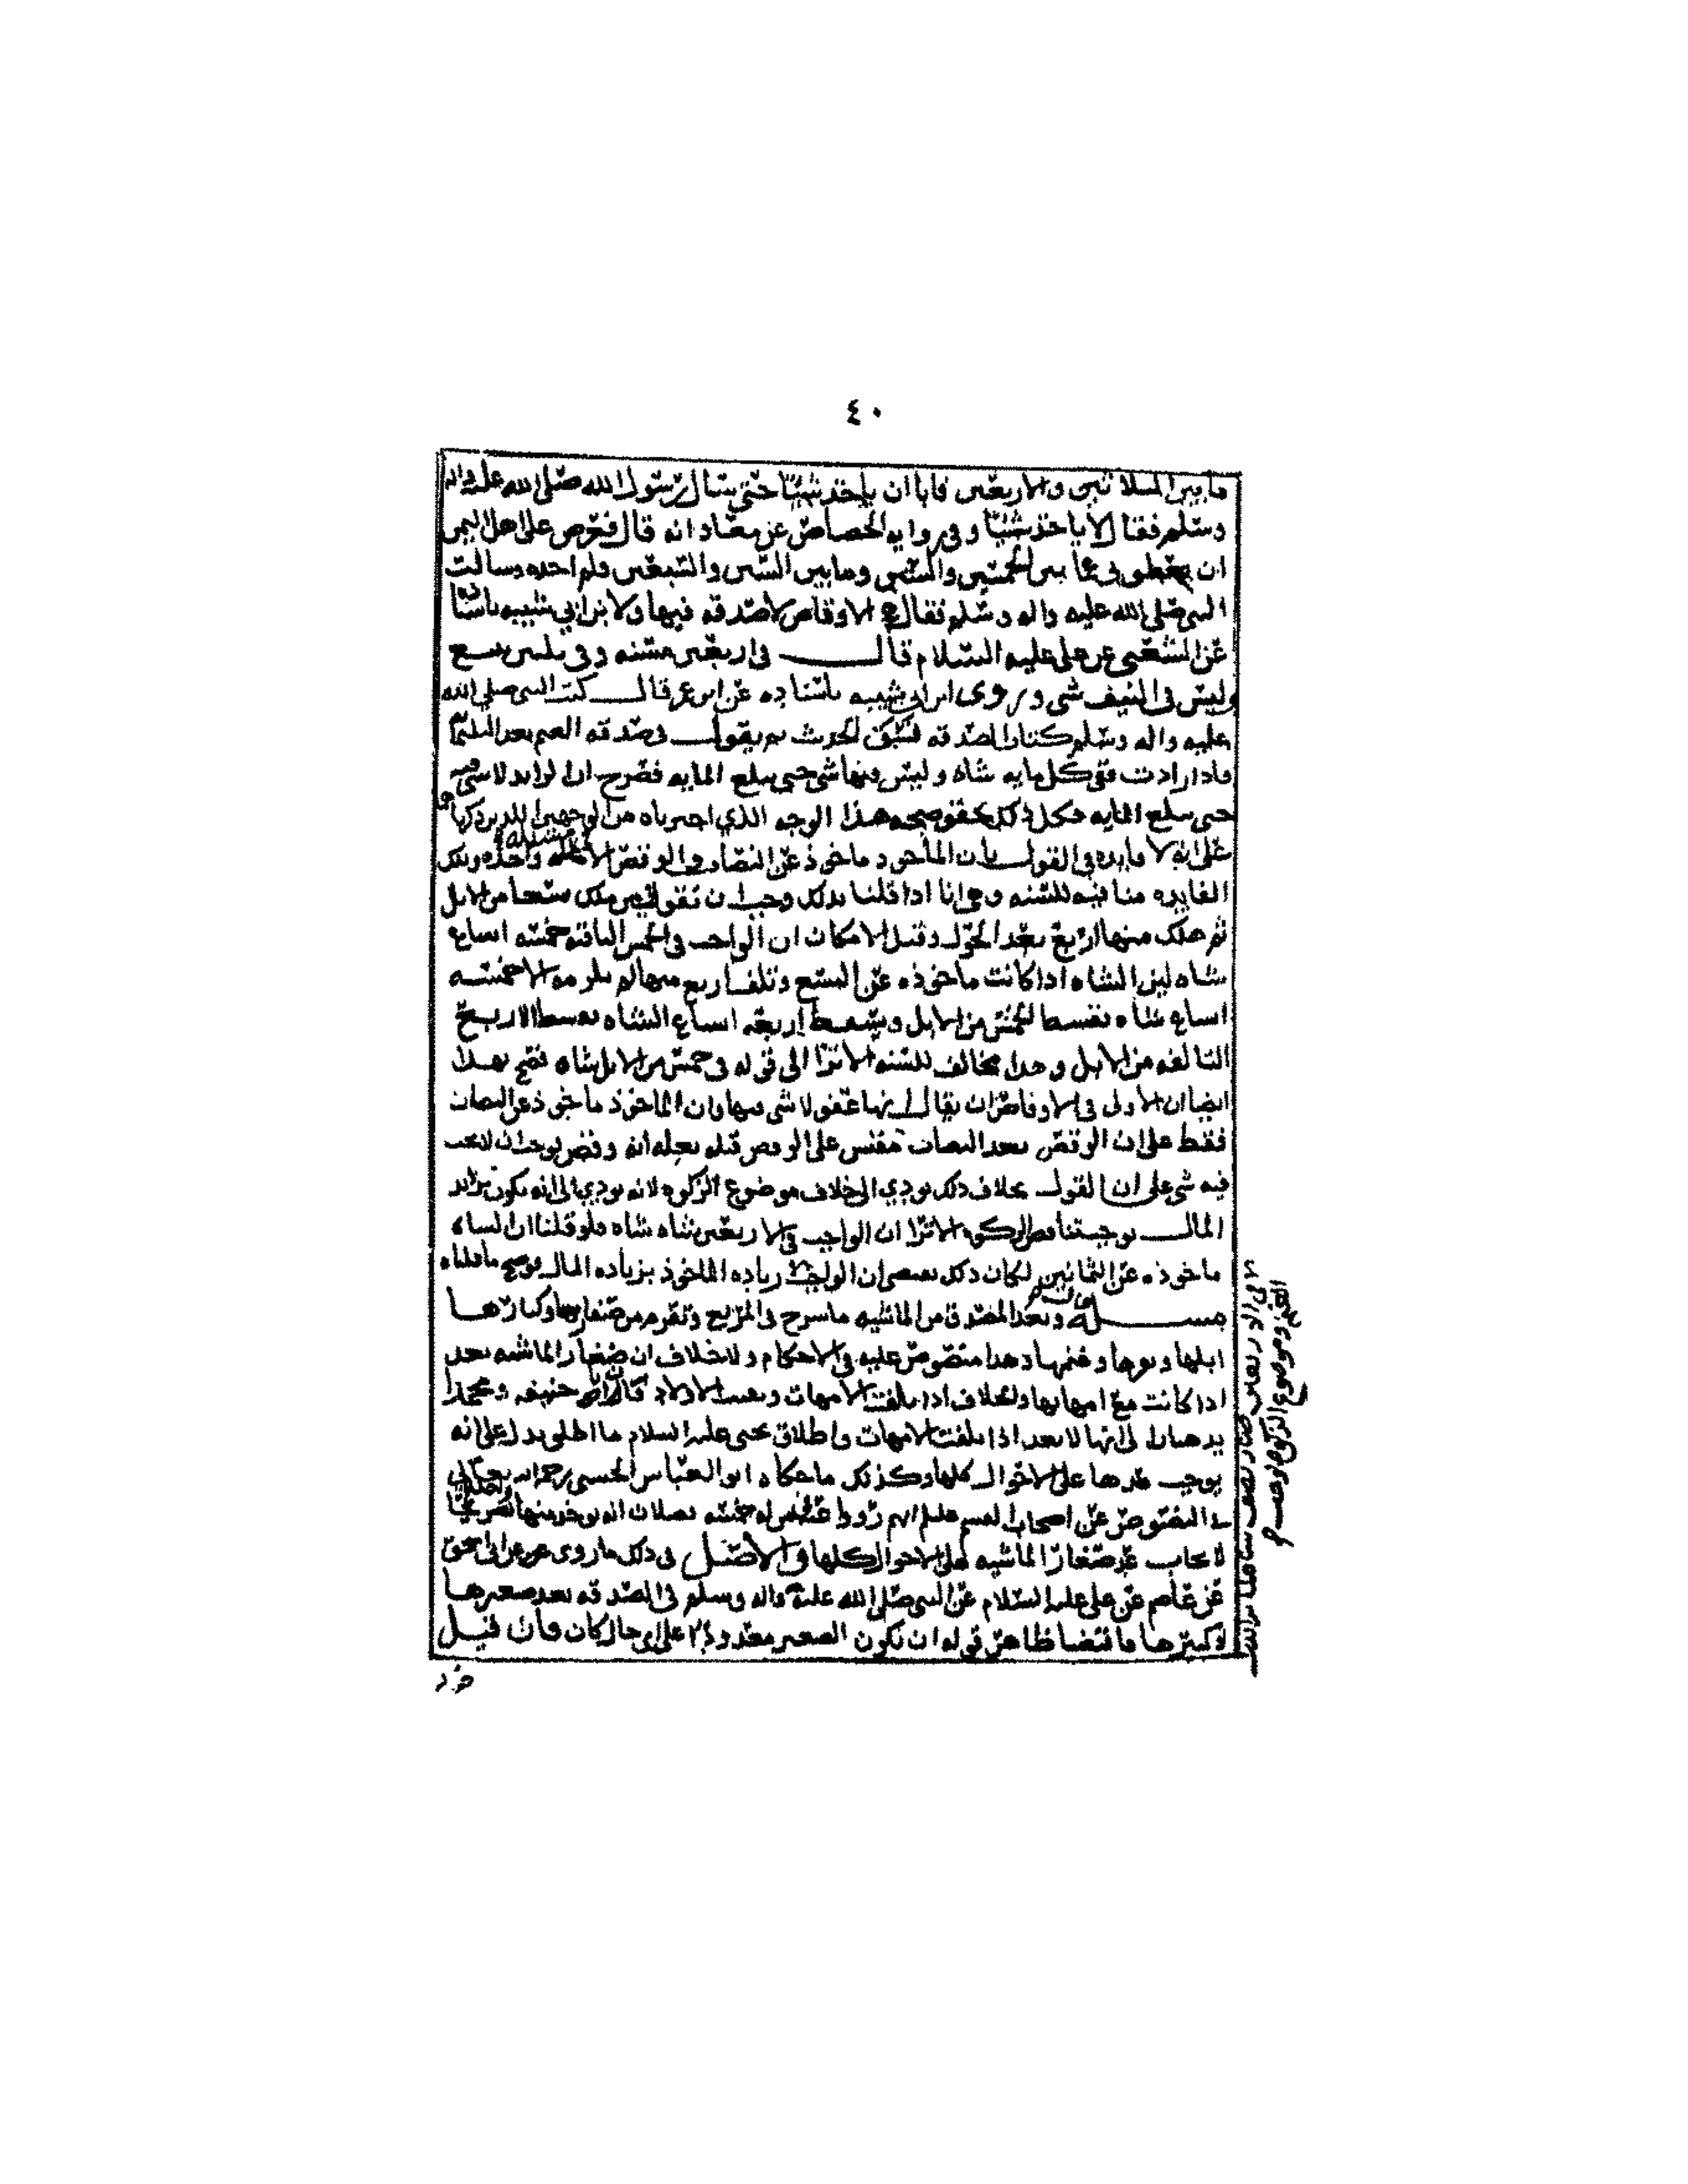 ٤٠
ما بين الثلاثين والاربعين فابا ان ياخذ شيئا حتى يسال رسول الله صلى الله عليه واله
وسلم فقال لا ياخذ شيئا وفي رواية الخصاص عن معاذ انه قال فعرض علي اهل اليمن
ان يعطوني ما بين الخمسين والستين وما بين الستين والسبعين فلم اخذه وسالت
النبي صلى الله عليه واله وسلم فقال هي الاوقاص لا صدقه فيها ولابن ابي شيبه باسناده
عن الشعبي عن علي عليه السلام قال في اربعين مسنه وفي ثلثين تبيع
وليس في النيف شي وروى ابن ابي شيبه باسناده عن ابن عمر قال كتب النبي صلى الله
عليه واله وسلم كتاب الصدقه فسبق الحديث ثم يقول في صدقه الغنم بعد الثلثمائه
فاذا زادت ففي كل مايه شاه وليس فيها شي حتى يبلغ المايه فصرح ان الزايد لا شي فيه
حتى يبلغ المايه فكل ذلك يحقق صحه هذا الوجه الذي اخترناه من الوجهين اللذين ذكرهما
على انه لا فايده في القول بان الماخوذ ماخوذ عن النصاب والوقص الا مسئله واحده وتلك
الفايده منافيه للسنه وهي انا اذا قلنا بذلك وجب ان نقول فيمن ملك تسعا من الابل
ثم هلك منها اربع بعد الحول وقبل الامكان ان الواجب في الخمس الباقيه خمسه اتساع
شاه لان الشاه اذا كانت ماخوذه عن التسع وتلف اربع منها لم يلزمه الا خمسه
اتساع شاه بقسط الخمس من الابل ويسقط اربعه اتساع الشاه بقسط الاربع
التالفه من الابل وهذا مخالف للسنه الا ترا الى قوله في خمس من الابل شاه فصح بهذا
ايضا ان الاولى في الاوقاص ان يقال انها عفو لا شي فيها وان الماخوذ ماخوذ عن النصاب
فقط على ان الوقص بعد النصاب مقيس على الوقص قبله بعله انه وقص فوجب ان لا يجب
فيه شي على ان القول بخلاف ذلك يودي الى خلاف موضوع الزكوه لانه يودي الى انه يكون تزايد
المال يوجب تناقص الزكوه الا ترا ان الواجب في الاربعين شاه شاه فلو قلنا ان الشاه
ماخوذه عن الثمانين لكان ذلك نقصان الواجب لا زياده الماخوذ بزياده المال فوضح ما قلناه
مسـله ويعد المصدق من الماشيه ما سرح في المرتع وتقرم من صغارها وكبارها
ابلها وبقرها وغنمها وهذا منصوص عليه في الاحكام ولا خلاف ان صغار الماشيه تعد
اذا كانت مع امهاتها والخلاف اذا تلفت الامهات وبقيت الاولاد فان ابا حنيفه ومحمدا
يذهبان الى انها لا تعد اذا تلفت الامهات واطلاق يحيى عليه السلام ما اطلق يدل على انه
يوجب عدها على الاحوال كلها وكذلك ما حكاه ابو العباس الحسني رحمه الله يحتمل
عن اصحاب القسم عليه السلام انهم رووا عنه فيمن له خمسه فصلان انه يوخذ منها
لايجاب عد صغار الماشيه على الاحوال كلها والاصل في ذلك ما روي عن ابي اسحق
عن عاصم عن علي عليه السلام عن النبي صلى الله عليه واله وسلم في الصدقه تعد صغيرها
وكبيرها فاقتضا ظاهر قوله ان تكون الصغير معدودا على اي حال كان فان قيل